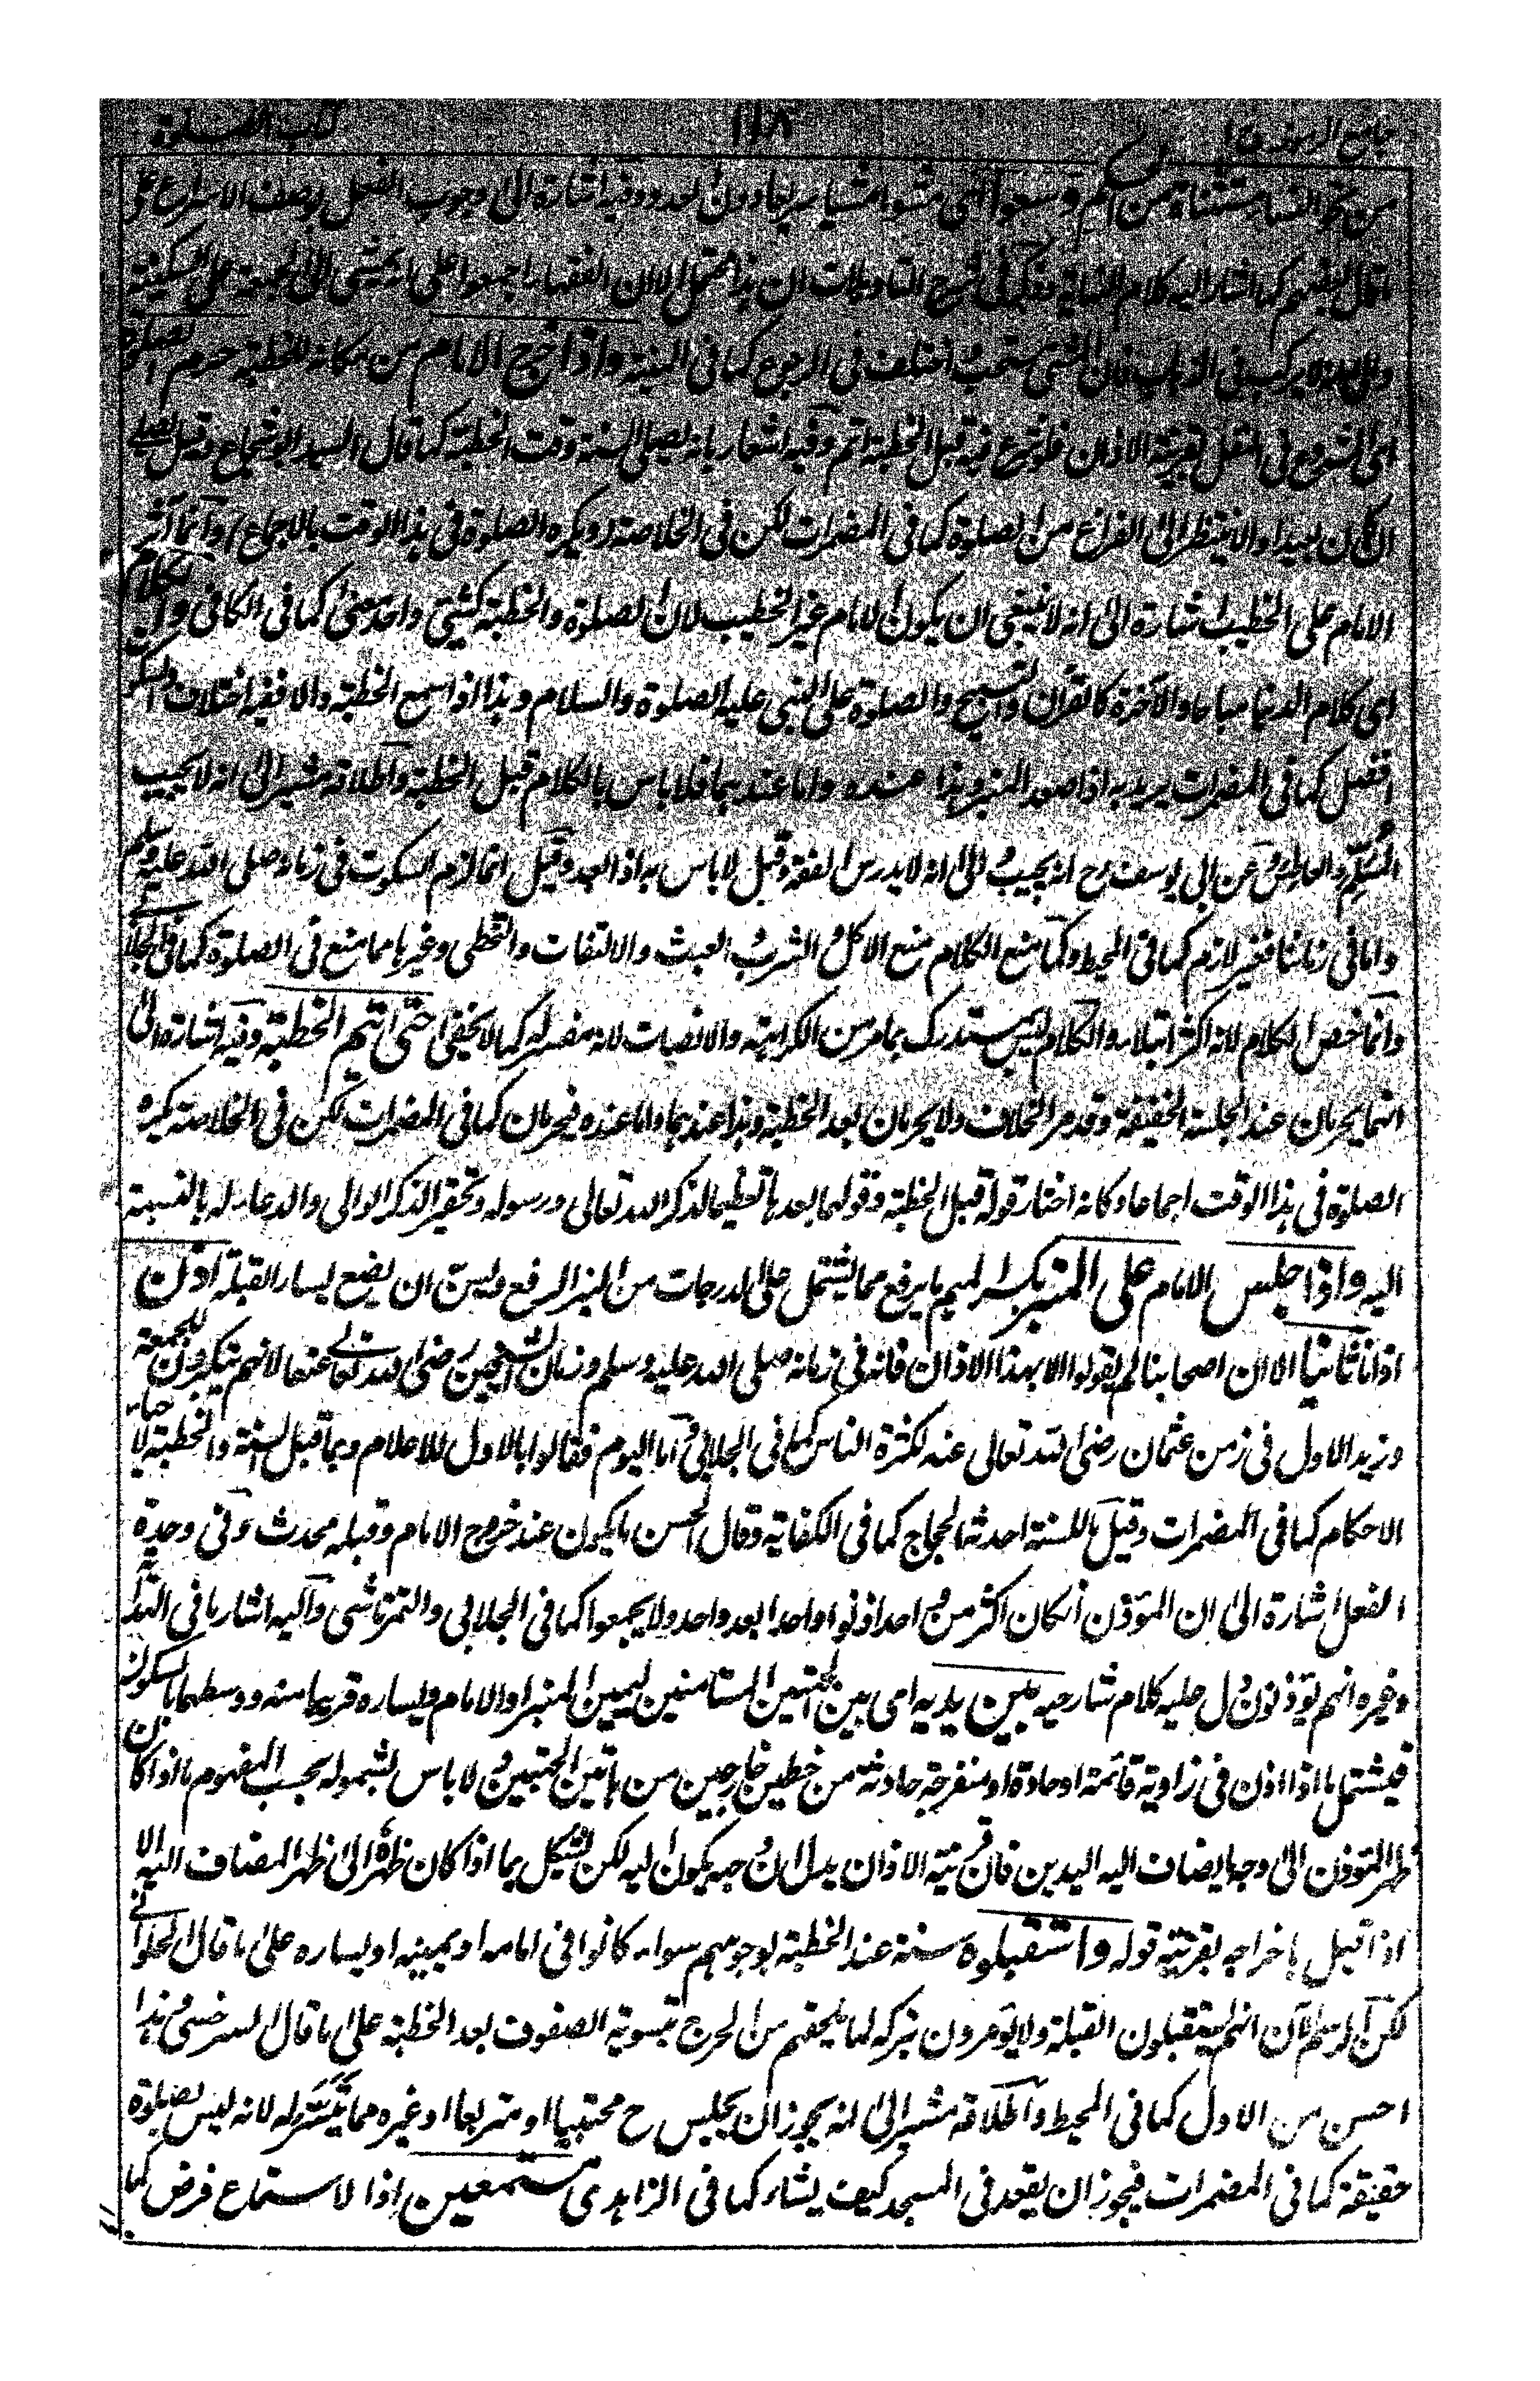 جامع الرموز ١١٨ كتاب الصلوة
وسعوا اى مشوا وفيه اشارة الى وجوب
كلام النهاية فى شرح التاويلات ان لان الفقهاء اجمعوا على انه يمشى الى الجمعة على السكينة
فى الذهاب فان المشى مستحب اختلف فى الرجوع كما فى المنية واذا خرج الامام من مكانه للخطبة حرم الصلوة
اى الشروع فى النفل بقرينة الاذان فلو شرع فيه قبل الخطبة اتم وفيه اشعار بانه يصلى السنة وقت الخطبة كما قال السيد ابو شجاع وقيل يصلى
ان كان بعيدا والا ينتظر الى الفراغ من الصلوة كما فى المضمرات لكن فى الخلاصة ويكره الصلوة فى هذا الوقت بالاجماع وانما آثر
الامام على الخطيب اشارة الى انه لا ينبغى ان يكون الامام غير الخطيب لان الصلوة والخطبة كشئ واحد معنى كما فى الكافى والكلام
اى كلام الدنيا مباحا والآخرة كالقرآن والتسبيح والصلوة على النبى عليه الصلوة والسلام وهذا اذا سمع الخطبة والا ففيه اختلاف والسكوت
افضل كما فى المضمرات يريد به اذا صعد المنبر وهذا عنده واما عندهما فلا باس بالكلام قبل الخطبة واطلاقه مشير الى انه لا يجيب
المسلم والعاطس وعن ابى يوسف رح انه يجيب والى انه لا يدرس الفقه وقيل لا باس به اذا بعد وقيل انما لزم السكوت فى زمانه صلى الله عليه وسلم
واما فى زماننا فغير لازم كما فى المحيط وكما منع الكلام منع الاكل والشرب والعبث والالتفات والتخطى وغيرها مما منع فى الصلوة كما فى الجلابى
وانما خص الكلام لانه اكثر ابتلاء والكلام ليس بمستدرك بما مر من الكراهة والانصات لانه مفسر له كما لا يخفى حتى اتم الخطبة وفيه اشارة الى
انهما يحرمان عند الجلسة الخفيفة وقد مر الخلاف ولا يحرمان بعد الخطبة وهذا عندهما واما عنده فيحرمان كما فى المضمرات لكن فى الخلاصة يكره
الصلوة فى هذا الوقت اجماعا وكانه اختار قوله قبل الخطبة وقولهما بعدها تعظيما لذكر الله تعالى ورسوله وتحقيرا لذكر الوالى والدعاء له بالنسبة
اليه واذا جلس الامام على المنبر بكسر الميم ما يرفع مما يشتمل على الدرجات من النبر الرفع وليس ان يضع يسار القبلة اذن
اذانا ثانيا الا ان اصحابنا لم يقولوا الا بهذا الاذان فانه فى زمانه صلى الله عليه وسلم وزمان الشيخين رضى الله تعالى عنهما لانهم يبكرون للجمعة
وزيد الاول فى زمن عثمان رضى الله تعالى عنه لكثرة الناس كما فى الجلابى واما اليوم فقالوا بالاول للاعلام وبما قبل السنة والخطبة لاحياء
الاحكام كما فى المضمرات وقيل ما للسنة احدثه الحجاج كما فى الكفاية وقال الحسن ما يكون عند خروج الامام وقبله محدث وفى وحدة
الفعل اشارة الى ان المؤذن ان كان اكثر من واحد اذنوا واحدا بعد واحد ولا يجمعوا كما فى الجلابى والتمرتاشى واليه اشار ما فى الهداية
وغيره انهم يؤذنون دل عليه كلام شارحيه بين يديه اى بين الجهتين المسامتتين ليمين المنبر او الامام ويساره قريبا منه ووسطهما بالسكون
فيشتمل ما اذا اذن فى زاوية قائمة او حادة او منفرجة حادثة من خطين خارجين من هاتين الجهتين ولا باس بشموله بحسب المفهوم ما اذا كان
ظهر المؤذن الى وجه ما يضاف اليه اليدين فان قرينة الاذان يدل ان وجهه يكون اليه لكن يشكل بما اذا كان ظهره الى ظهر المضاف اليه الا
اذا قيل باخراجه بقرينة قوله واستقبلوه سنة عند الخطبة بوجوههم سواء كانوا فى امامه او يمينه او يساره على ما قال الحلوانى
لكن الرسم الآن انهم يستقبلون القبلة ولا يؤمرون بتركه لما يلحقهم من الحرج بتسوية الصفوف بعد الخطبة على ما قال السرخسى وهذا
احسن من الاول كما فى المحيط واطلاقه مشير الى انه يجوز ان يجلس ح محتبيا او متربعا او غيره مما تيسر له لانه ليس بصلوة
حقيقة كما فى المضمرات فيجوز ان يقعد فى المسجد كيف يشاء كما فى الزاهدى مستمعين اذا لاستماع فرض كما